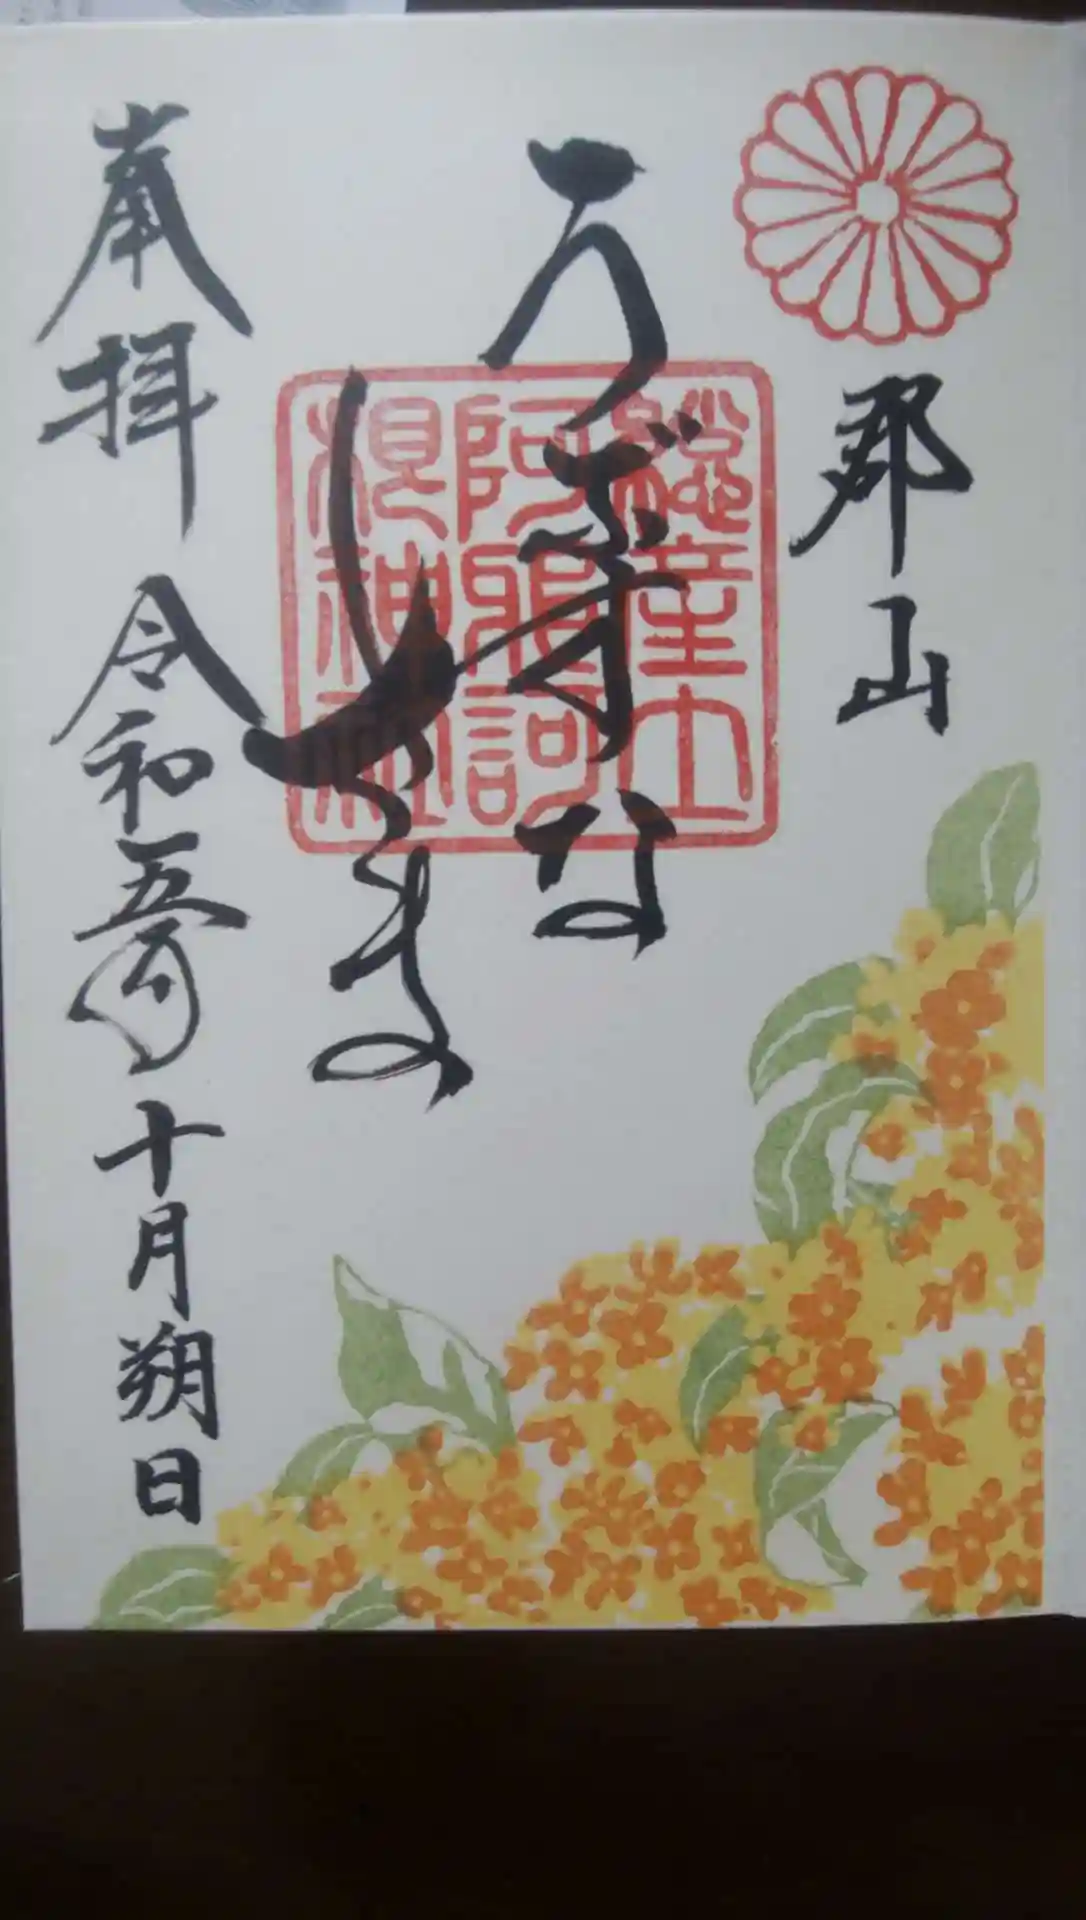 郡山
うぶすな
總産土
阿邪訶
根神社
奉拝 令和五年十月朔日